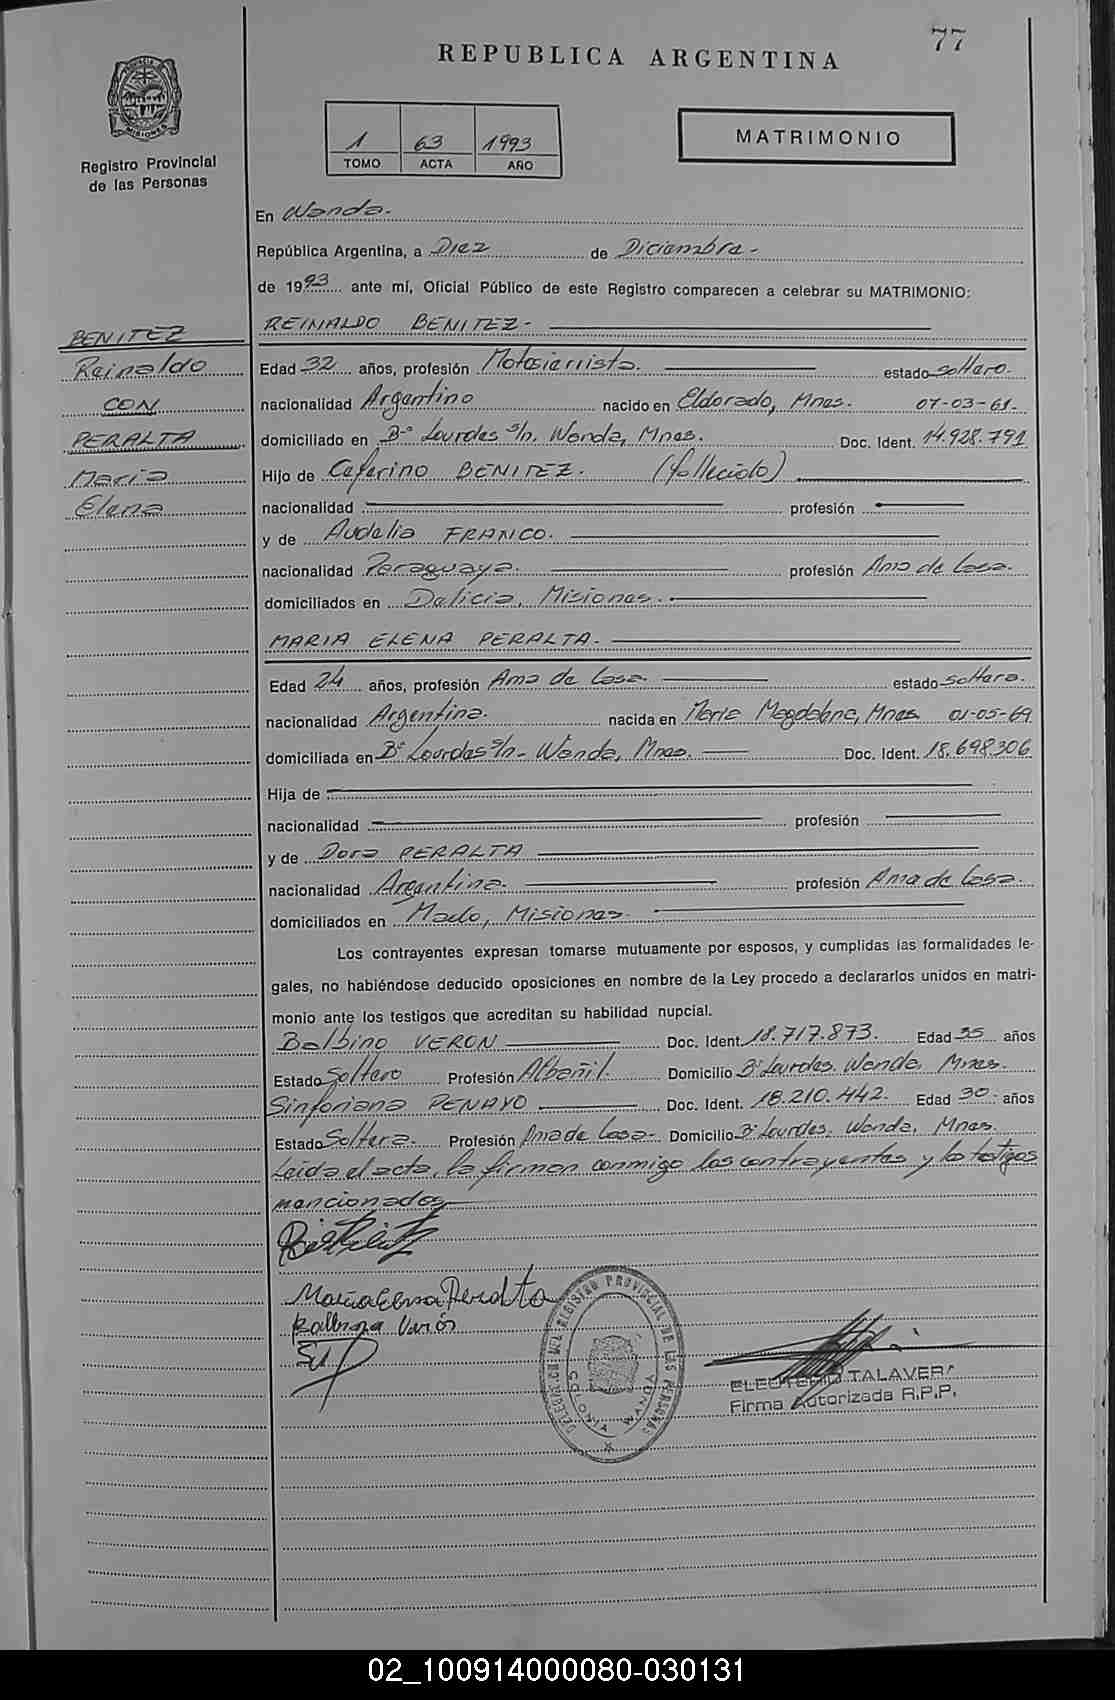 77
REPUBLICA ARGENTINA
PROVINCIA DE
MISIONES
Registro Provincial
de las Personas
1 63 1993
TOMO ACTA AÑO
MATRIMONIO
En Wanda.
República Argentina, a Diez de Diciembre -
de 1993 ante mí, Oficial Público de este Registro comparecen a celebrar su MATRIMONIO:
REINALDO BENITEZ-
BENITEZ
Reinaldo
CON
PERALTA
Maria
Elena
Edad 32 años, profesión Motosierrista. estado soltero.
nacionalidad Argentino nacido en Eldorado, Mnes. 07-03-61.
domiciliado en Bº Lourdes s/n. Wanda, Mnes. Doc. Ident. 14.928.791
Hijo de Ceferino BENITEZ. (fallecido)
nacionalidad profesión
y de Audelia FRANCO.
nacionalidad Paraguaya. profesión Ama de Casa.
domiciliados en Delicia, Misiones.
MARIA ELENA PERALTA.
Edad 24 años, profesión Ama de Casa. estado soltera.
nacionalidad Argentina. nacida en Maria Magdalena, Mnes. 01-05-69
domiciliada en Bº Lourdes s/n- Wanda, Mnes. Doc. Ident. 18.698.306
Hija de
nacionalidad profesión
y de Dora PERALTA
nacionalidad Argentina. profesión Ama de Casa.
domiciliados en Mado, Misiones.
Los contrayentes expresan tomarse mutuamente por esposos, y cumplidas las formalidades le-
gales, no habiéndose deducido oposiciones en nombre de la Ley procedo a declararlos unidos en matri-
monio ante los testigos que acreditan su habilidad nupcial.
Balbino VERON Doc. Ident. 18.717.873. Edad 35 años
Estado Soltero Profesión Albañil. Domicilio Bº Lourdes. Wanda, Mnes.
Sinforiana PENAYO Doc. Ident. 18.210.442. Edad 30- años
Estado Soltera. Profesión Ama de Casa- Domicilio Bº Lourdes, Wanda, Mnes.
Leida el acta, la firman conmigo los contrayentes y los testigos
mencionados
Maria Elena Peralta
Balbino Verón
DELEGACION DEL REGISTRO PROVINCIAL DE LAS PERSONAS
COLONIA WANDA
TALAVERA
Firma Autorizada R.P.P.
02_100914000080-030131